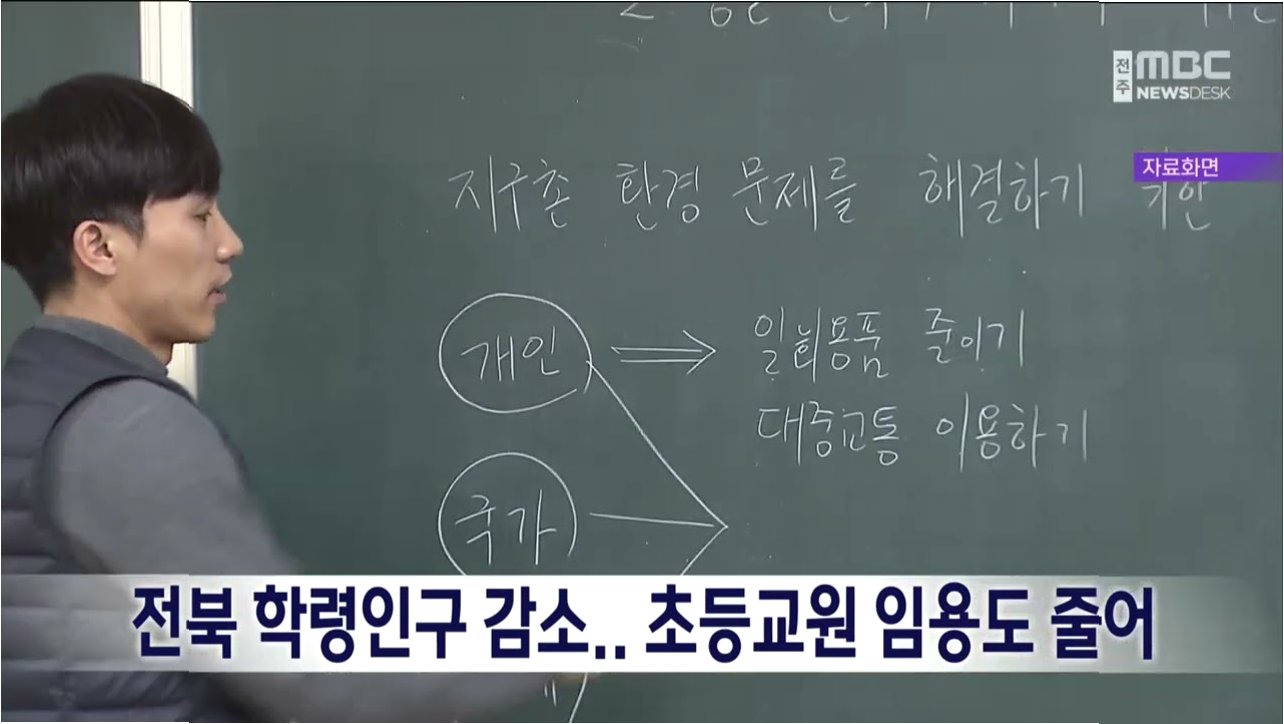 전주 MBC
NEWSDESK
자료화면
지구촌 환경 문제를 해결하기
개인
일회용품 줄이기
대중교통 이용하기
국가
전북 학령인구 감소.. 초등교원 임용도 줄어